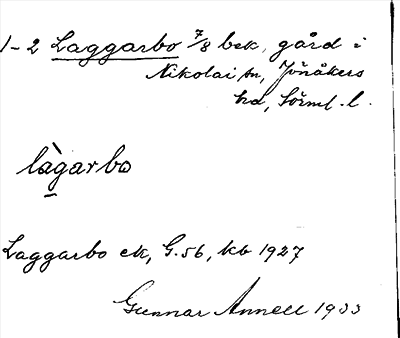 1-2 Laggarbo 7/8 bek, gård i
Nikolai sn, Jönåkers
hd, Sörml. l.
làgarbo
Laggarbo ek, G.56, kb 1927
Gunnar Annell 1933